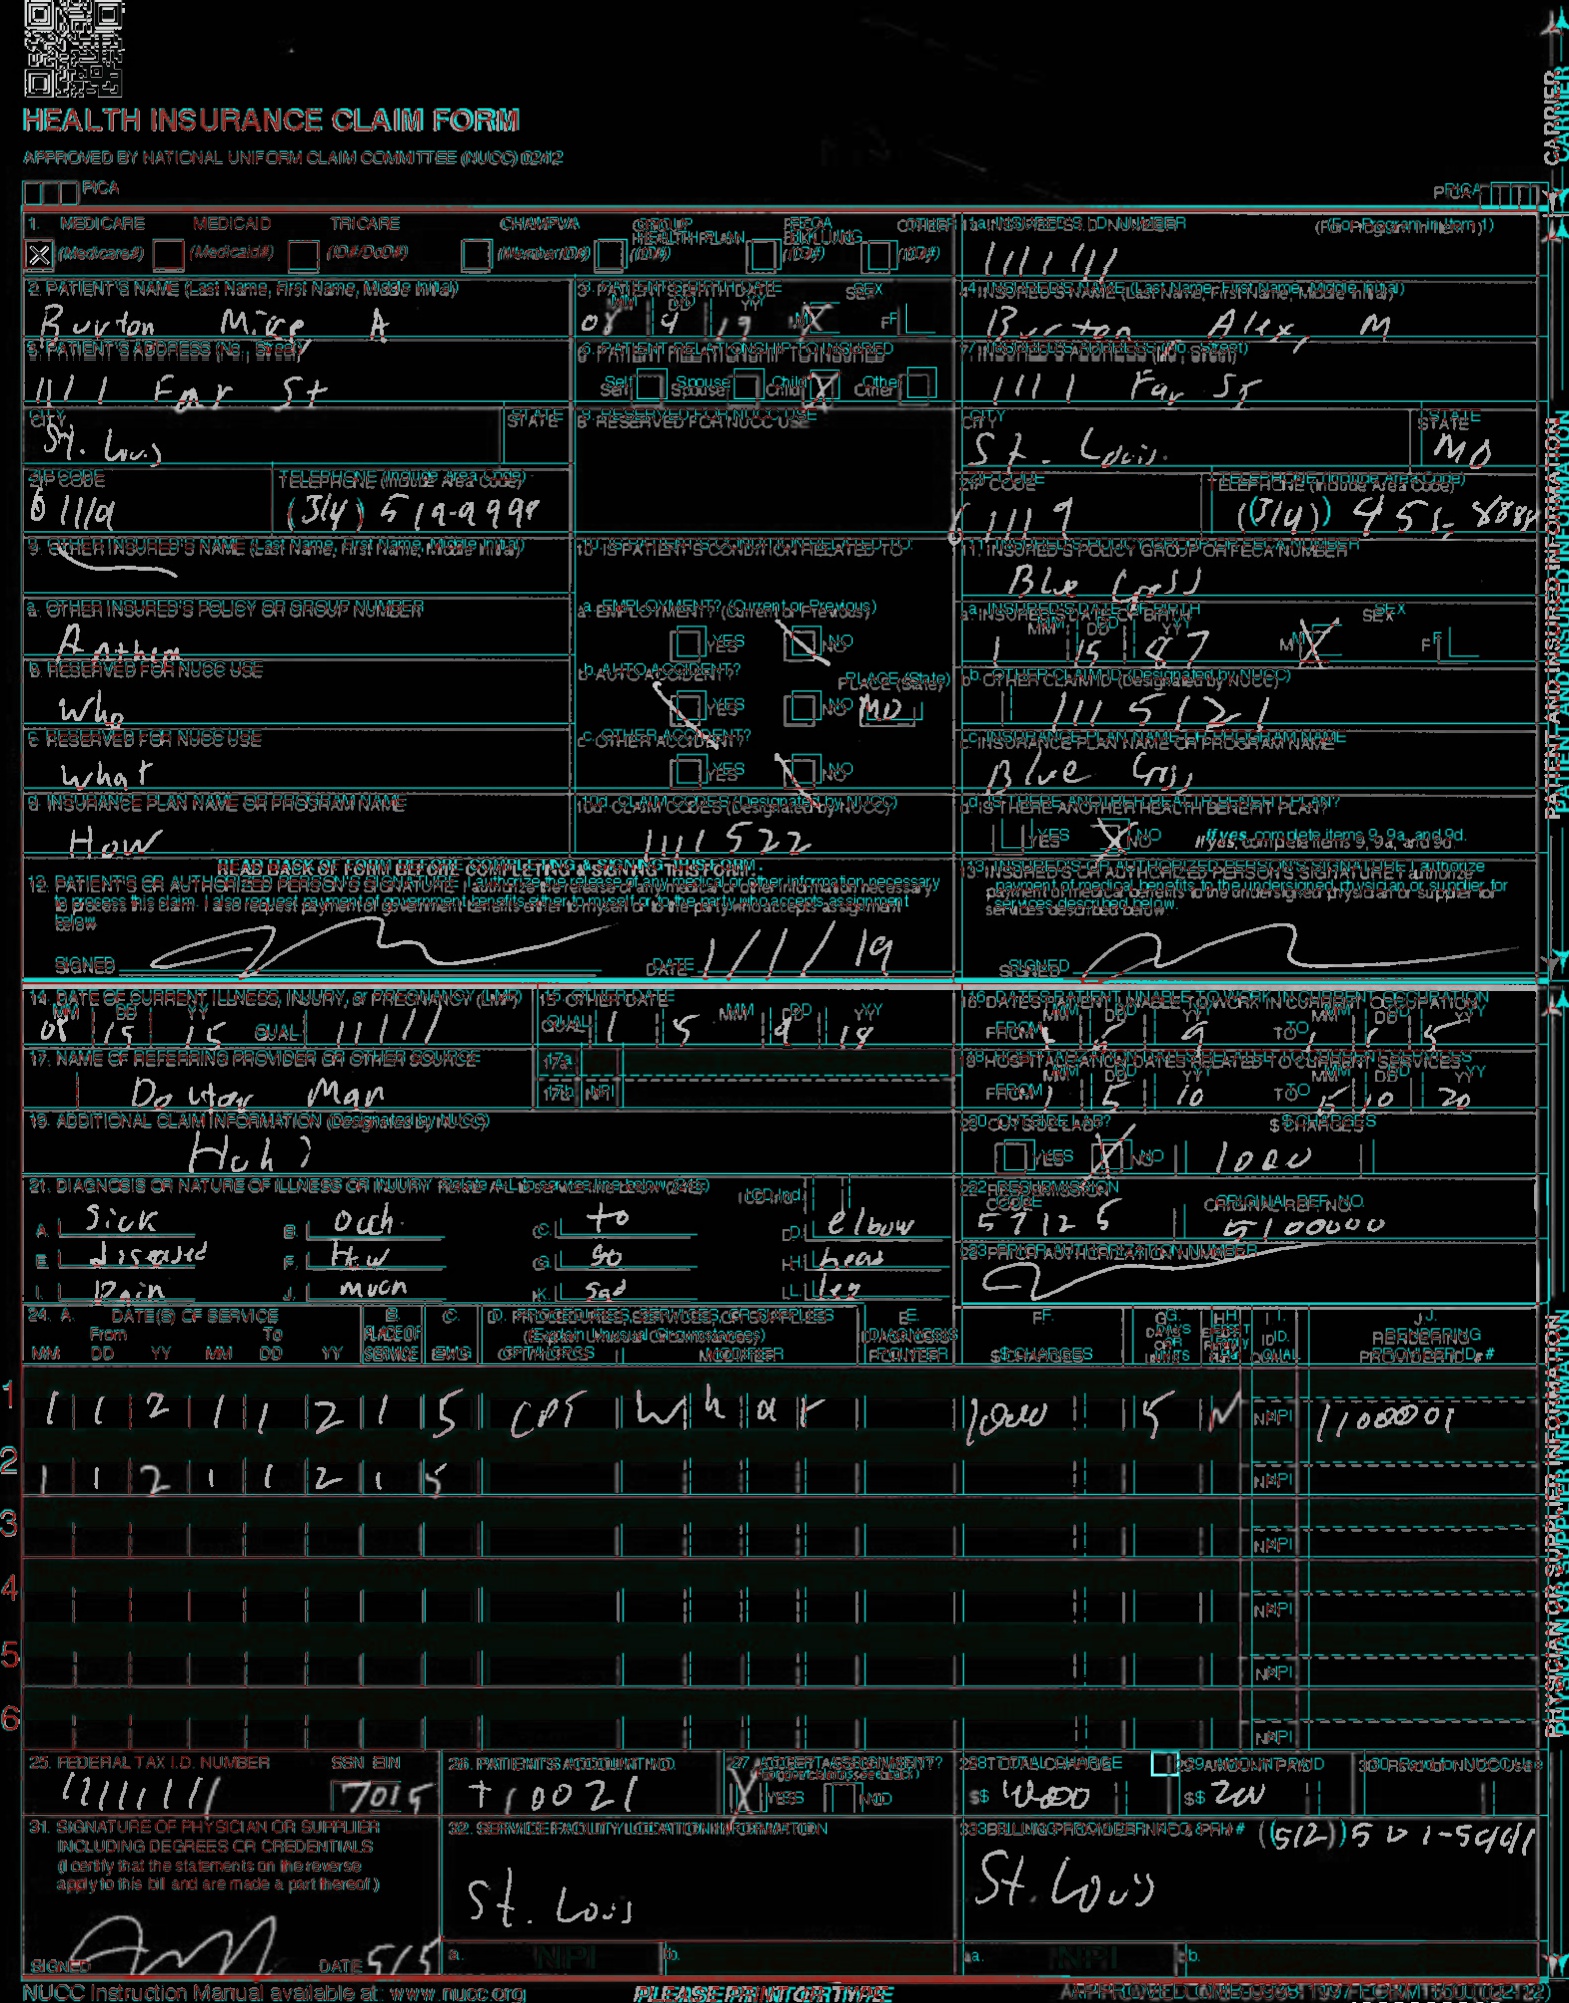 HEALTH INSURANCE CLAIM FORM
APPROVED BY NATIONAL UNIFORM CLAIM COMMITTEE (NUCC) 02/12
CARRIER
PICA PICA
1. MEDICARE MEDICAID TRICARE CHAMPVA GROUP HEALTH PLAN FECA BLK LUNG OTHER
X (Medicare#) (Medicaid#) (ID#/DoD#) (Member ID#) (ID#) (ID#) (ID#)
1a. INSURED'S I.D. NUMBER (For Program in Item 1)
1111111
2. PATIENT'S NAME (Last Name, First Name, Middle Initial)
Burton Mike A
3. PATIENT'S BIRTH DATE SEX
MM DD YY
08 9 19 M X F
4. INSURED'S NAME (Last Name, First Name, Middle Initial)
Burton Alex, M
5. PATIENT'S ADDRESS (No., Street)
1111 Far St
6. PATIENT RELATIONSHIP TO INSURED
Self Spouse Child X Other
7. INSURED'S ADDRESS (No., Street)
1111 Far St
CITY STATE
St. Louis
8. RESERVED FOR NUCC USE
CITY STATE
St. Louis. MO
ZIP CODE TELEPHONE (Include Area Code)
61119 (314) 519-9999
ZIP CODE TELEPHONE (Include Area Code)
61119 (314) 8888
9. OTHER INSURED'S NAME (Last Name, First Name, Middle Initial)
10. IS PATIENT'S CONDITION RELATED TO:
11. INSURED'S POLICY GROUP OR FECA NUMBER
Blue Cross
a. OTHER INSURED'S POLICY OR GROUP NUMBER
Anthem
a. EMPLOYMENT? (Current or Previous)
YES NO
a. INSURED'S DATE OF BIRTH SEX
MM DD YY
1 15 87 M X F
b. RESERVED FOR NUCC USE
Who
b. AUTO ACCIDENT? PLACE (State)
YES NO MO
b. OTHER CLAIM ID (Designated by NUCC)
1115121
c. RESERVED FOR NUCC USE
What
c. OTHER ACCIDENT?
YES NO
c. INSURANCE PLAN NAME OR PROGRAM NAME
Blue Cross
d. INSURANCE PLAN NAME OR PROGRAM NAME
How
10d. CLAIM CODES (Designated by NUCC)
1111522
d. IS THERE ANOTHER HEALTH BENEFIT PLAN?
YES X NO If yes, complete items 9, 9a, and 9d.
READ BACK OF FORM BEFORE COMPLETING & SIGNING THIS FORM.
12. PATIENT'S OR AUTHORIZED PERSON'S SIGNATURE I authorize the release of any medical or other information necessary
to process this claim. I also request payment of government benefits either to myself or to the party who accepts assignment
below.
SIGNED DATE 1/1/19
13. INSURED'S OR AUTHORIZED PERSON'S SIGNATURE I authorize
payment of medical benefits to the undersigned physician or supplier for
services described below.
SIGNED
PATIENT AND INSURED INFORMATION
14. DATE OF CURRENT ILLNESS, INJURY, or PREGNANCY (LMP)
MM DD YY
08 15 15 QUAL. 11111
15. OTHER DATE
QUAL. 1 MM DD YY
5 9 18
16. DATES PATIENT UNABLE TO WORK IN CURRENT OCCUPATION
MM DD YY MM DD YY
FROM 1 5 9 TO 1 1 5
17. NAME OF REFERRING PROVIDER OR OTHER SOURCE
Doctor Man
17a.
17b. NPI
18. HOSPITALIZATION DATES RELATED TO CURRENT SERVICES
MM DD YY MM DD YY
FROM 1 5 10 TO 15 10 20
19. ADDITIONAL CLAIM INFORMATION (Designated by NUCC)
Huh?
20. OUTSIDE LAB? $ CHARGES
YES X NO 1000
21. DIAGNOSIS OR NATURE OF ILLNESS OR INJURY Relate A-L to service line below (24E) ICD Ind.
A. Sick B. Occh. C. to D. elbow
E. diseased F. How G. so H. head
I. Pain J. much K. sad L. leg
22. RESUBMISSION CODE ORIGINAL REF. NO.
57125 5100000
23. PRIOR AUTHORIZATION NUMBER
24. A. DATE(S) OF SERVICE B. C. D. PROCEDURES, SERVICES, OR SUPPLIES E. F. G. H. I. J.
From To PLACE OF SERVICE EMG (Explain Unusual Circumstances) DIAGNOSIS POINTER DAYS OR UNITS EPSDT Family Plan ID. QUAL. RENDERING PROVIDER ID. #
MM DD YY MM DD YY CPT/HCPCS MODIFIER $ CHARGES
1 1 1 2 1 1 2 1 5 CPT What 1000 5 N NPI 11000001
2 1 1 2 1 1 2 1 5 NPI
3 NPI
4 NPI
5 NPI
6 NPI
25. FEDERAL TAX I.D. NUMBER SSN EIN
11111111 7015
26. PATIENT'S ACCOUNT NO.
+10021
27. ACCEPT ASSIGNMENT?
(For govt. claims, see back)
X YES NO
28. TOTAL CHARGE
$
29. AMOUNT PAID
$ 200
30. Rsvd for NUCC Use
31. SIGNATURE OF PHYSICIAN OR SUPPLIER
INCLUDING DEGREES OR CREDENTIALS
(I certify that the statements on the reverse
apply to this bill and are made a part thereof.)
SIGNED DATE 5/5
32. SERVICE FACILITY LOCATION INFORMATION
St. Louis
a. NPI b.
33. BILLING PROVIDER INFO & PH # (512)
St. Louis
a. NPI b.
PHYSICIAN OR SUPPLIER INFORMATION
NUCC Instruction Manual available at: www.nucc.org
PLEASE PRINT OR TYPE